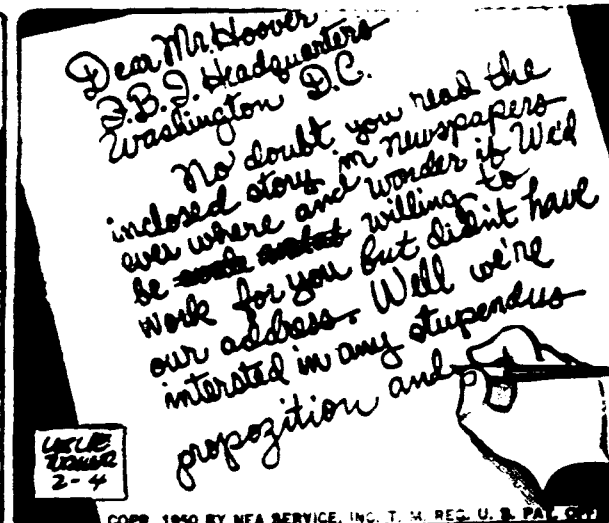 Dear Mr. Hoover
F.B.I. Headquarters
Washington D.C.
No doubt you read the
inclosed story in newspapers
ever where and wonder if We'd
be willing to
work for you but didn't have
our address. Well we're
intersted in any stupendus
propozition and
LESLIE
TURNER
2-4
COPR. 1950 BY NEA SERVICE, INC. T. M. REG. U. S. PAT. OFF.